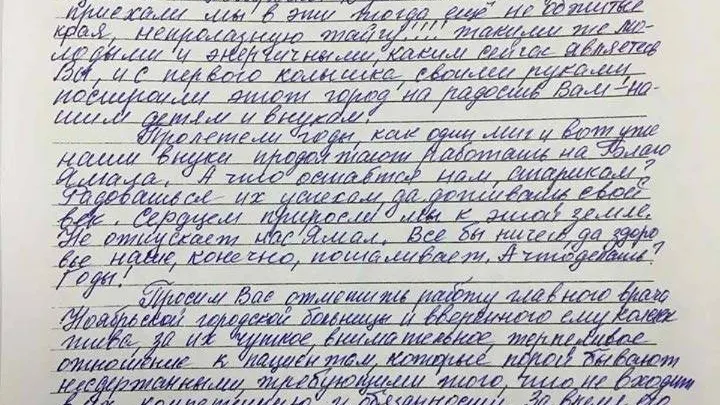 приехали мы в эти тогда ещё не обжитые
края, непролазную тайгу!!!! такими же мо-
лодыми и энергичными, каким сейчас является
Вы, и с первого колышка, своими руками,
построили этот город на радость Вам-на-
шим детям и внукам.
Пролетели годы, как один миг и вот уже
наши внуки продолжают работать на благо
Ямала. А что остаётся нам, старикам?
Радоваться их успехам, да доживать свой
век. Сердцем приросли мы к этой земле.
Не отпускает нас Ямал. Все бы ничего, да здоро
вье наше, конечно, пошаливает. А что делать?
Годы!
Просим Вас отметить работу главного врача
Ноябрьской городской больницы и вверенного ему коллек
тива за их чуткое, внимательное, терпеливое
отношение к пациентам, которые порой бывают
несдержанными, требующими того, что не входит
в их компетенцию и обязанности. За время его